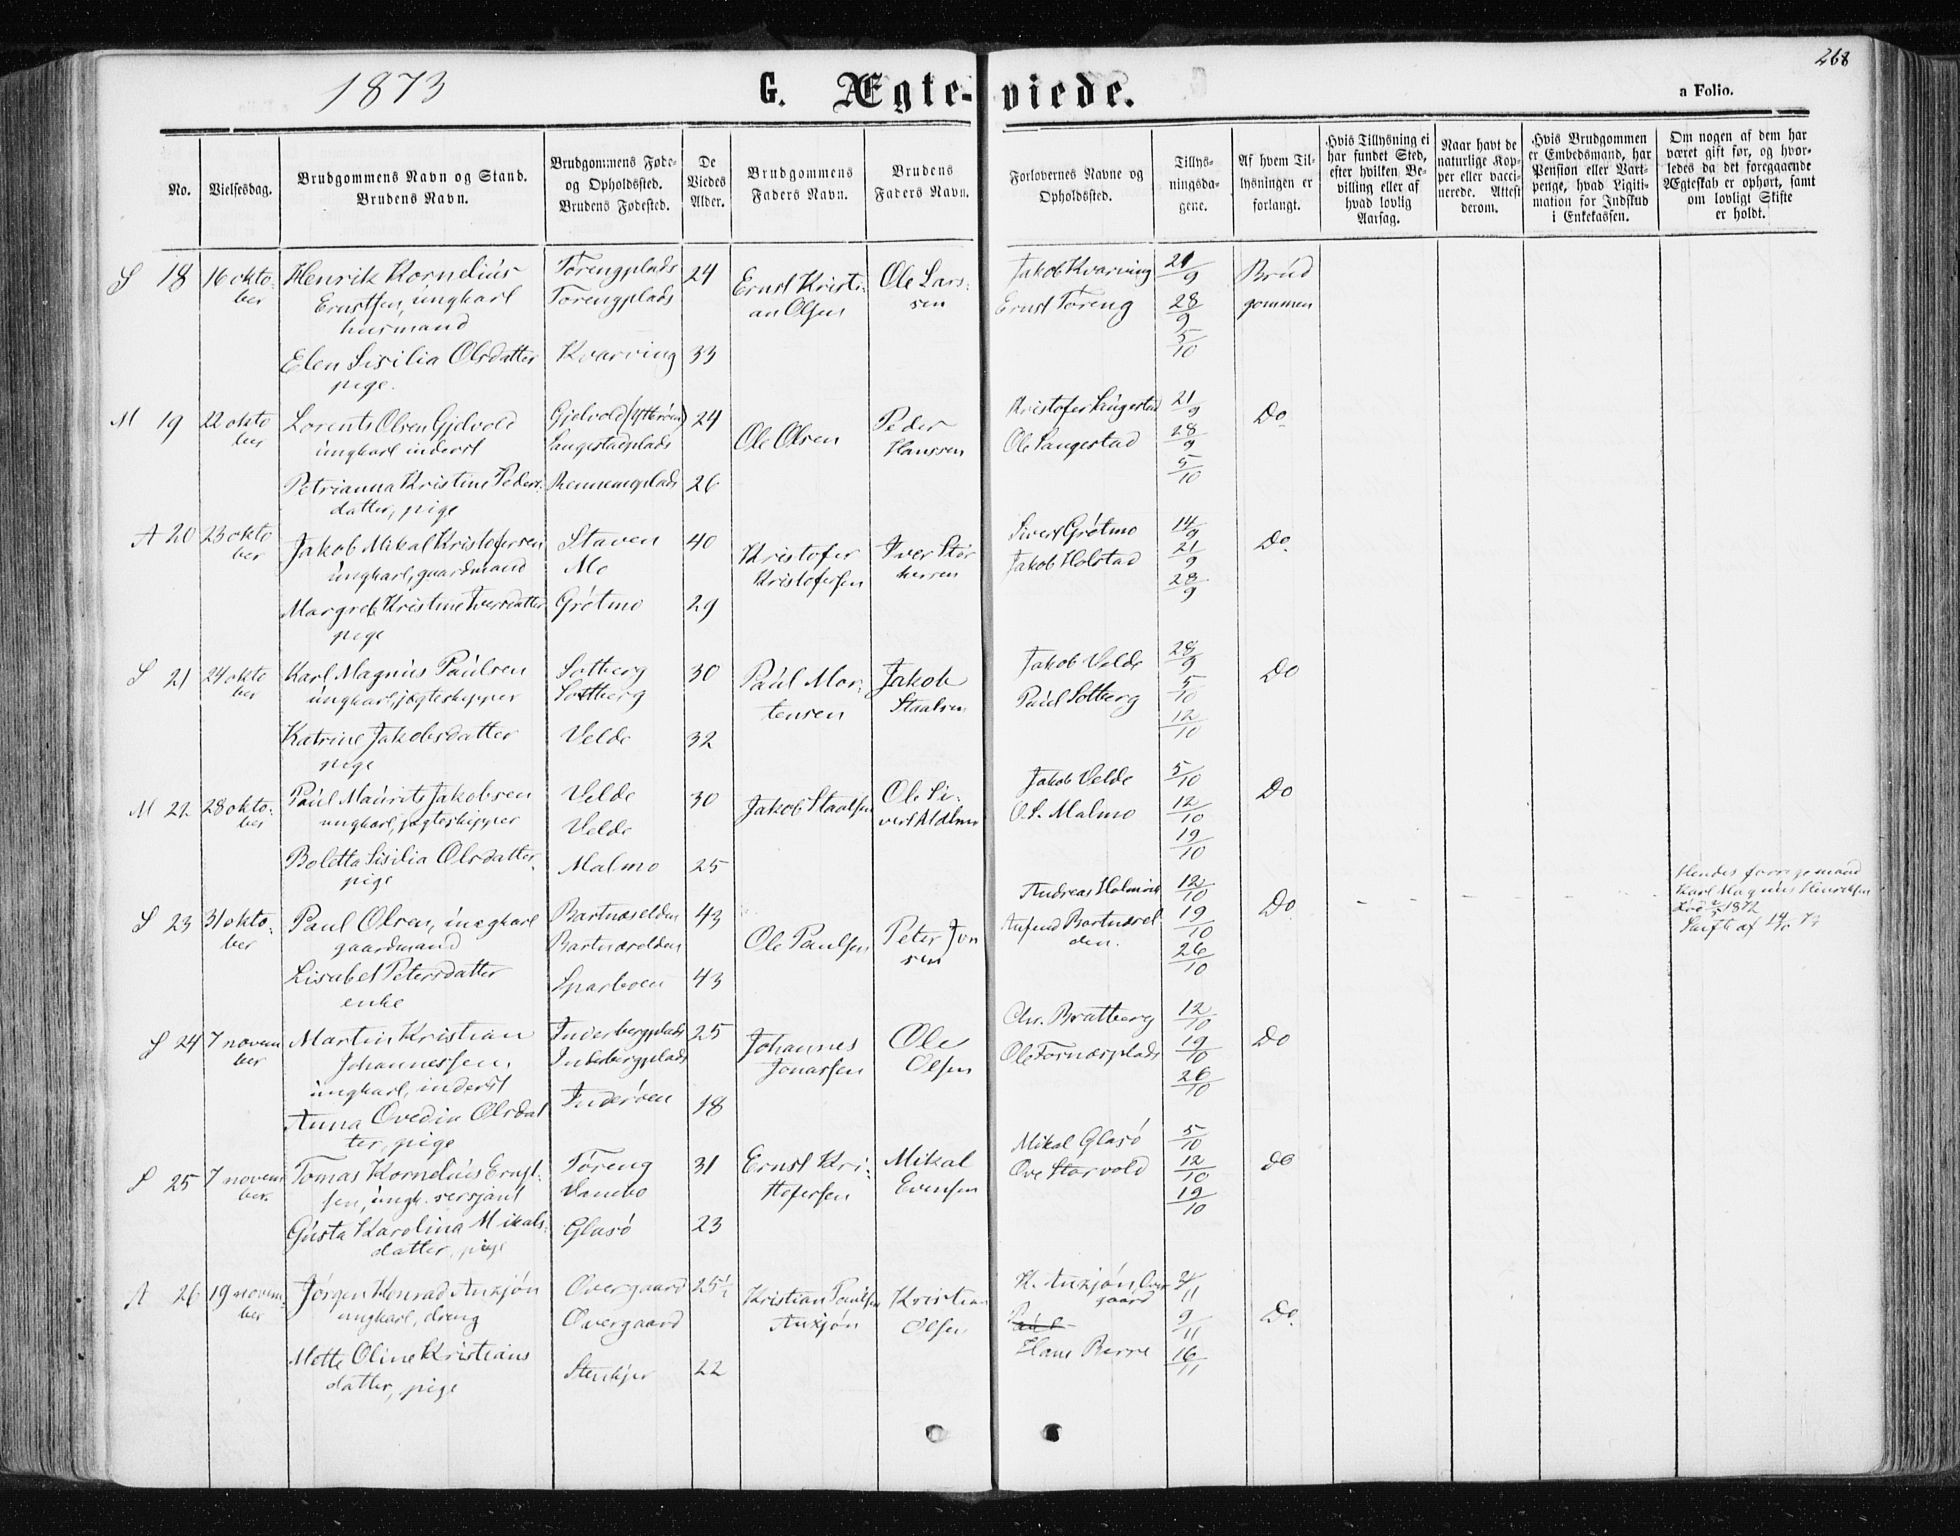 1873
G. Ægte-viede.
268
a Folio.
No.
Vielsesdag.
Brudgommens Navn og Stand.
Brudens Navn.
Brudgommens Føde-
og Opholdssted.
Brudens Fødested.
De
Viedes
Alder.
Brudgommens
Faders Navn.
Brudens
Faders Navn.
Forlovernes Navne og
Opholdssted.
Tillys-
ningsda-
gene.
Af hvem Til-
lysningen er
forlangt.
Hvis Tillysning ei
har fundet Sted,
efter hvilken Be-
villing eller af
hvad lovlig
Aarsag.
Naar havt de
naturlige Kop-
per eller vacci-
nerede. Attest
derom.
Hvis Brudgommen
er Embedsmand, har
Pension eller Vart-
penge, hvad Legiti-
mation for Indskud
i Enkekassen.
Om nogen af dem har
været gift før, og hvor-
ledes da det foregaaende
Ægteskab er ophørt, samt
om lovligt Skifte
er holdt.
S 18
16 okto-
ber
Henrik Kornelius
Ernstsen, ungkarl
husmand
Elen Sisilia Olsdatter
pige.
Torengplads
Torengplads
Kvarving
24
33
Ernst Kristi-
an Olsen
Ole Lars-
sen
Jakob Kvarving
Ernst Toreng
21/9
28/9
5/10
Brud
gommen
M 19
22 okto
ber
Lorents Olsen Gjelvold
ungkarl inderst
Petrianna Kristine Peders
datter, pige
Gjelvold (Ytterøen)
Langestadplads
Rennemsplads
24
26
Ole Olsen
Peder
Hanssen
Kristofer Langestad
Ole Langestad
21/9
28/9
5/10
Do
A 20
23 okto
ber
Jakob Mikal Kristofersen
ungkarl, gaardmand
Margret Kristine Iversdatter
pige
Staven
Mo
Grötmo
40
29
Kristofer
Kristofersen
Iver Stör
kersen
Sivert Grötmo
Jakob Holstad
14/9
21/9
28/9
Do.
S 21
24 okto
ber
Karl Magnus Paulsen
ungkarl, jægteskipper
Katrine Jakobsdatter
pige
Solberg
Solberg
Velde
30
32
Paul Mor-
tensen
Jakob
Staalsen
Jakob Velde
Paul Solberg
28/9
5/10
12/10
Do
M 22
28 okto-
ber
Paul Maurits Jakobsen
ungkarl, jægteskipper
Boletta Sisilia Olsdatter
pige
Velde
Velde
Malmo
30
25
Jakob Staalsen
Ole Si-
vert Malmo
Jakob Velde
O.S. Malmo
5/10
12/10
19/10
Do
S 23
31 okto-
ber
Paul Olsen, ungkarl
gaardmand
Lisabet Petersdatter
enke
Bartnæselden
Bartnæselden
Sparboen
43
43
Ole Paulsen
Peter Jon
sen
Andreas Holm
Bartnæsel
den.
12/10
19/10
26/10
Do
Hendes forrige mand
Karl Magnus Henriksen
1872
Skifte af 14/10 73
S 24
7 novem
ber
Martin Kristian
Johannessen,
ungkarl, inderst
Anna Ovedia Olsdat
ter, pige
Inderbergplads
Inderbergplads
Inderöen
25
18
Johannes
Jonassen
Ole
Olsen
Chr. Bratberg
Ole Tornæsplads
12/10
19/10
26/10
Do
S 25
7 novem
ber.
Tomas Kornelius Ernst-
sen, ungk. sersjant
Gusta Karolina Mikals-
datter, pige
Töreng
Vanebo
Glasö
31
23
Ernst Kri-
stofersen
Mikal
Evensen
Mikal Glasö
Ove Storvold
5/10
12/10
19/10
Do
A 26
19 novem-
ber
Jörgen Konrad Auxjön
ungkarl, dreng
Mette Oline Kristians
datter, pige
Overgaard
Overgaard
Stenkjer
25½
22
Kristian Paulsen
Auxjön
Kristian
Olsen
K. Auxjön, Over
gaard
Paul
Hans Berre
2/11
9/11
16/11
Do.